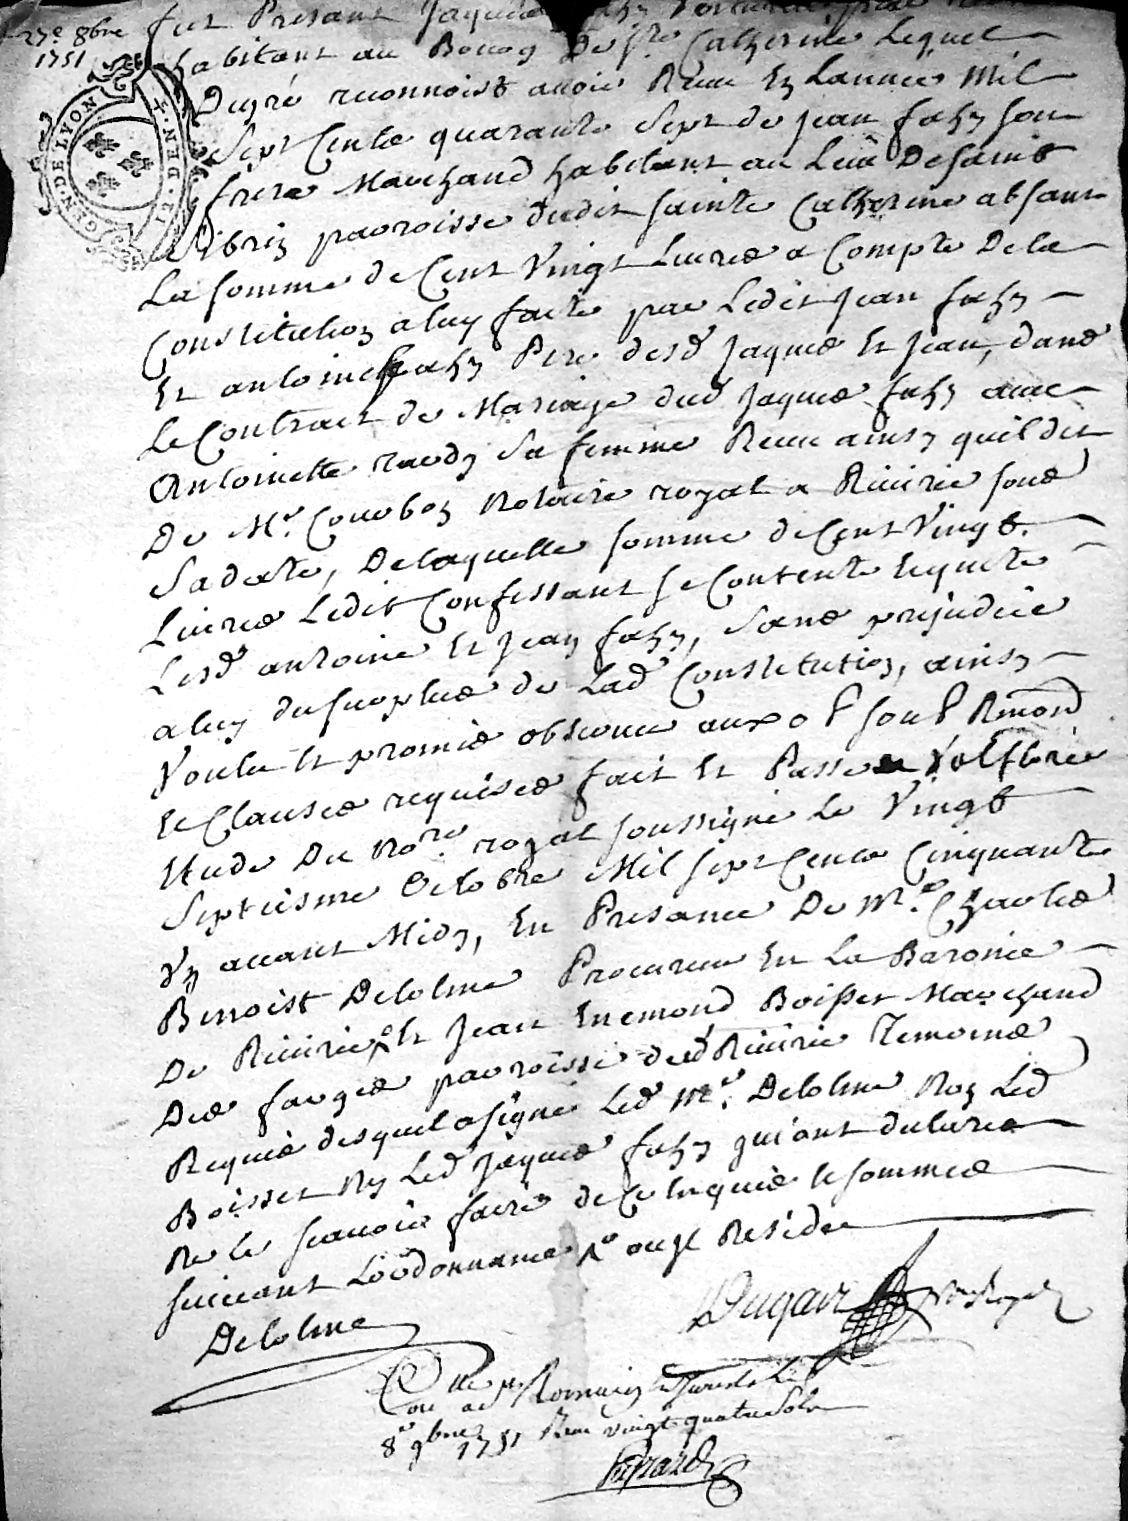 27e 8bre
1751
fut Present Jaques fahy
habitant au Bourg De ste Catherine Lequel
Degré reconnoist avoir Receu En Lannée Mil
Sept Cents quarante Sept de jean fahy son
frere Marchand habitant au Lieu De saint
sibrin parroisse dudit sainte Catherine absant
La somme de Cent Vingt Livres a Compte De la
Constitution a luy faite par Ledit Jean fahy
Et antoine fahy Pere desd Jaques Et Jean, dans
Le Contract de Mariage dud Jaques fahy avec
Antoinette sa femme Receu ainsy quil dit
De Me. Courbon Notaire royal a Riverie sous
Sa datte, De laquelle somme de Cent Vingt
Livres Ledit Confessant se Contente Equite
Lesd antoine Et Jean fahy, Sans prejudice
a luy du surplus de Lad Constitution, ainsy
Voulu Et promis observer aux
Et Clauses requises fait Et Passé
Etude Du Nore. royal soussigné Le Vingt
Septiesme Octobre Mil sept Cents Cinquante
Un avant Midy, En Presance De Mre. Charles
Benoist Delolme Procureur En La Baronie
De Riverie Et Jean Enemond Boisset Marchand
Des farges parroisse dud Riverie Temoins
Requis desquel a signé Led Me. Delolme Non Led
Boisset Ny Led Jaques fahy qui ont declaré
Ne le scavoir faire de Ce Enquis Et sommés
suivant Lordonnance
Delolme
Dugas Nore Royal
Coe a St Romain
8e 9bre 1751 Receu vingt quatre sols